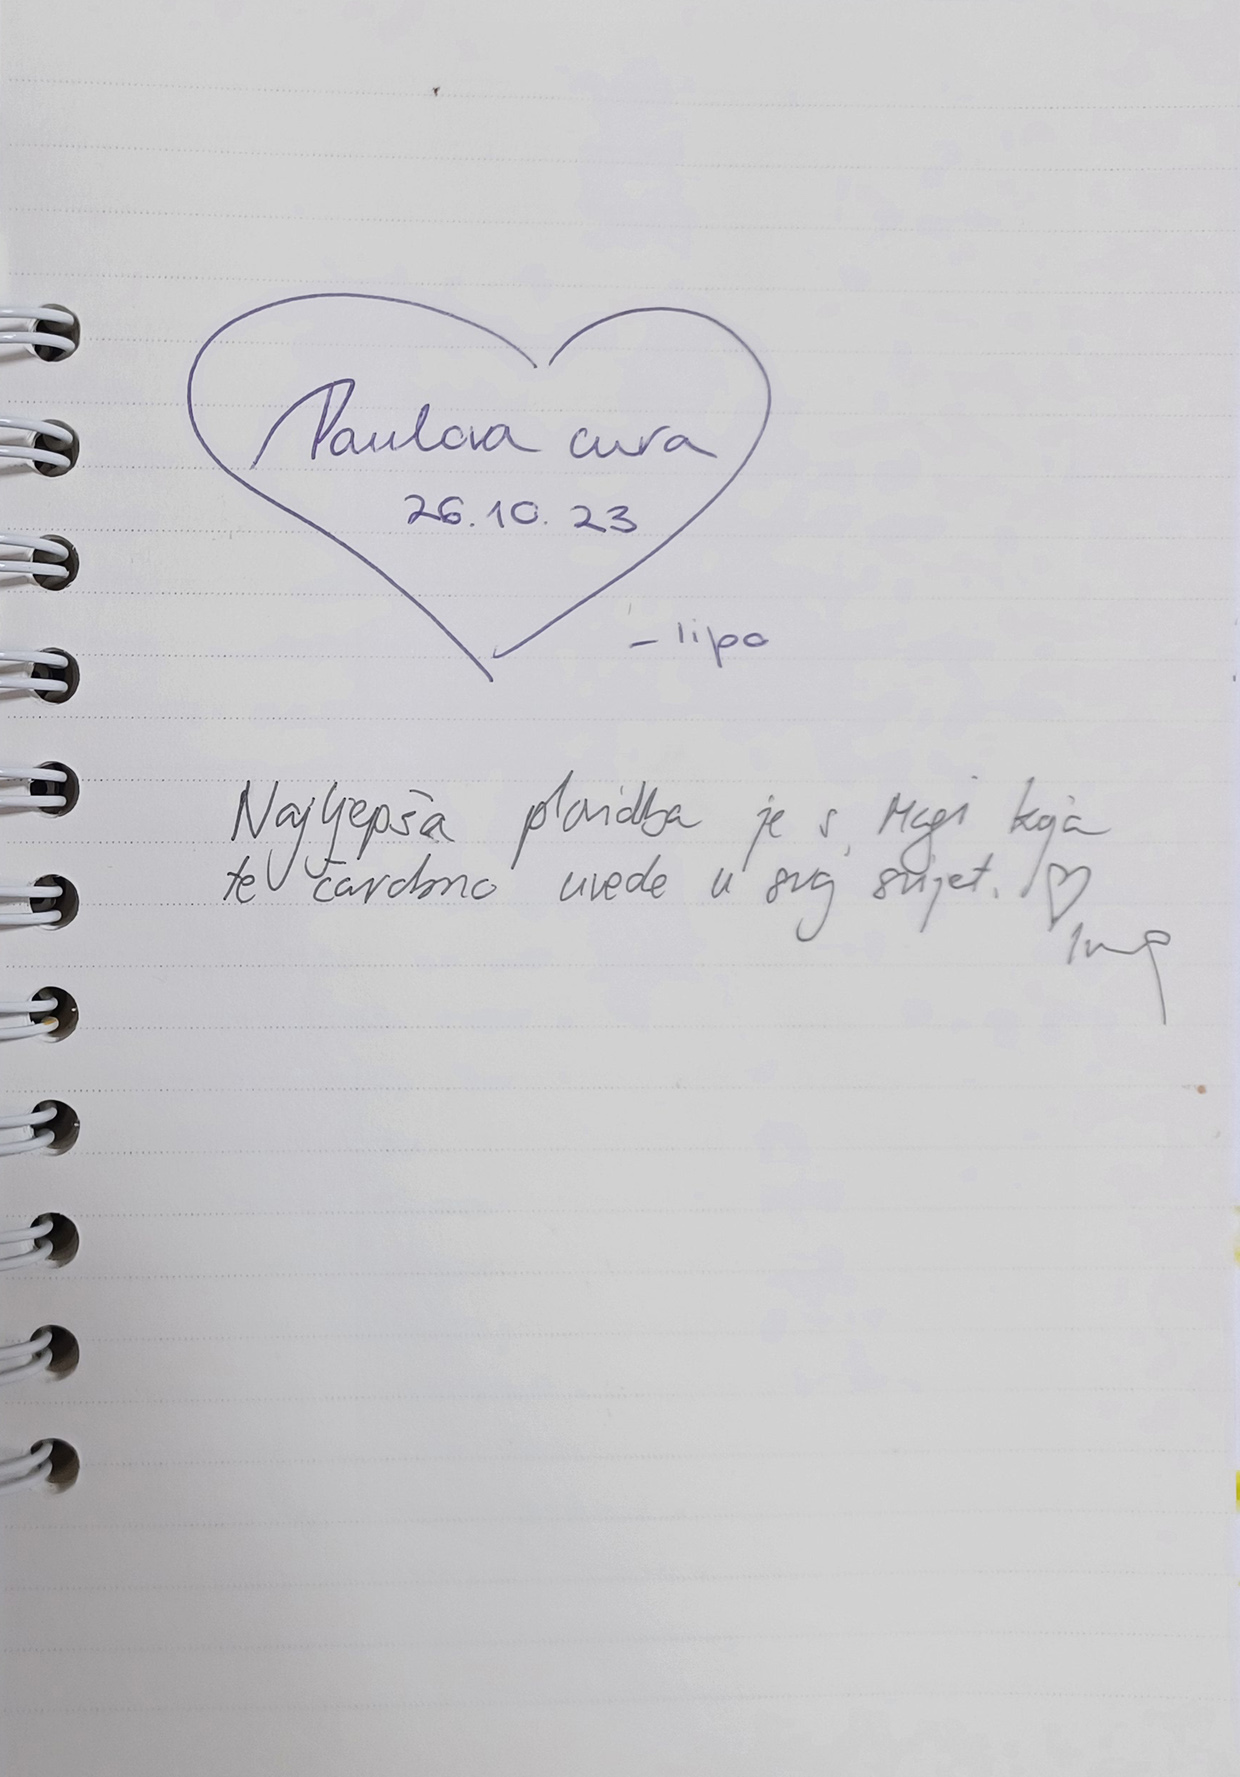 Paulova cura
26.10.23
- lipa
Najljepša plovidba je s Magi koja
te čarobno uvede u svoj svijet. ♡